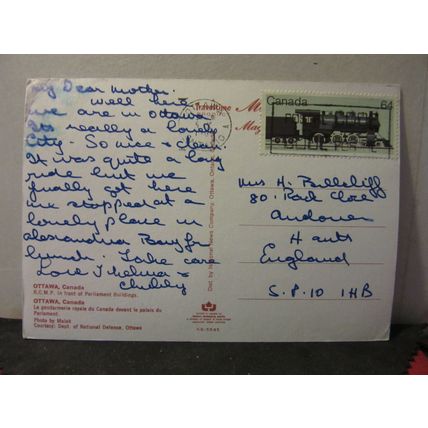 My Dear Mother.
Well here
we are in Ottawa
its really a lovely
City. So nice & clean
It was quite a long
ride but we
finally got here
we stopped at a
lovely place in
Alexandria Bay for
lunch. Take care
Love Thelma &
Chubby
OTTAWA, Canada
R.C.M.P. in front of Parliament Buildings.
OTTAWA, Canada
La gendarmerie royale du Canada devant le palais du
Parlement.
Photo by Malak
Courtesy: Dept. of National Defence, Ottawa
Dist. by National News Company, Ottawa, Ont.
Traveltime
Canada
64
Mrs H.
80. Park Close
Andover
Hants
England
S.P.10 1HB